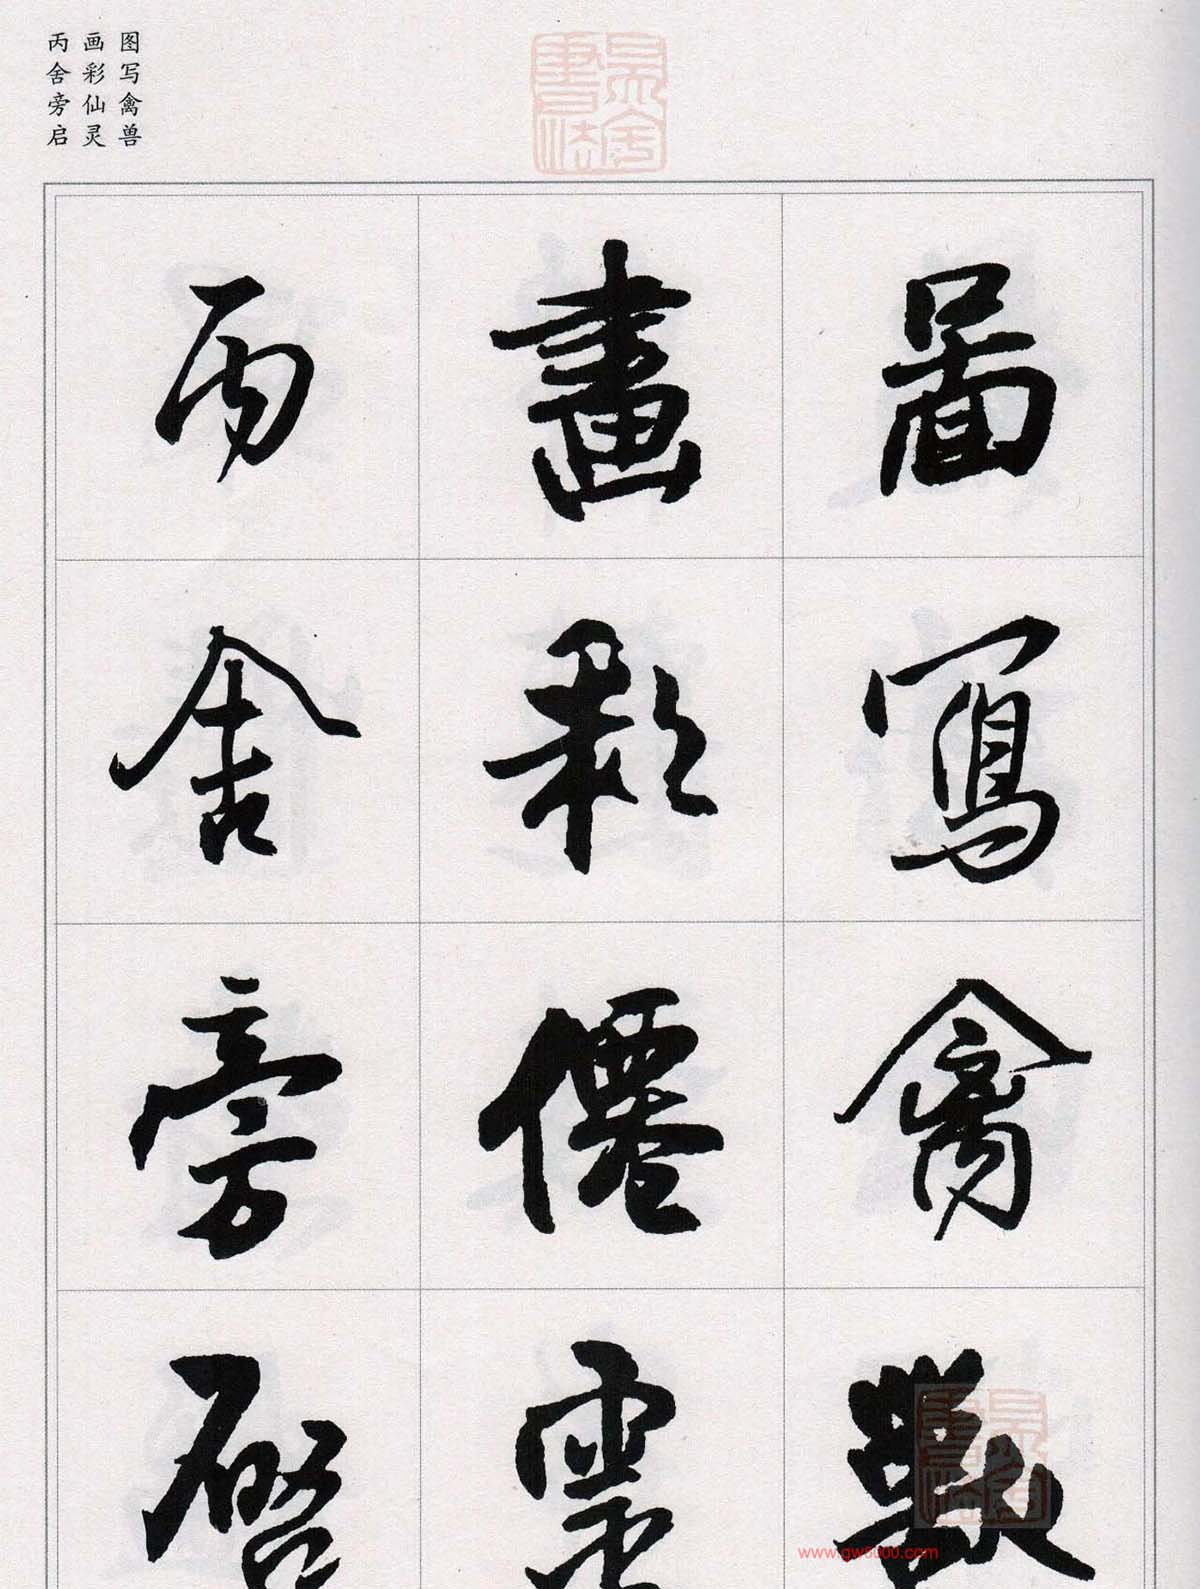 图写禽兽
画彩仙灵
丙舍旁启
圖寫禽獸
畫彩僊靈
丙舍旁啓
www.gw5000.com